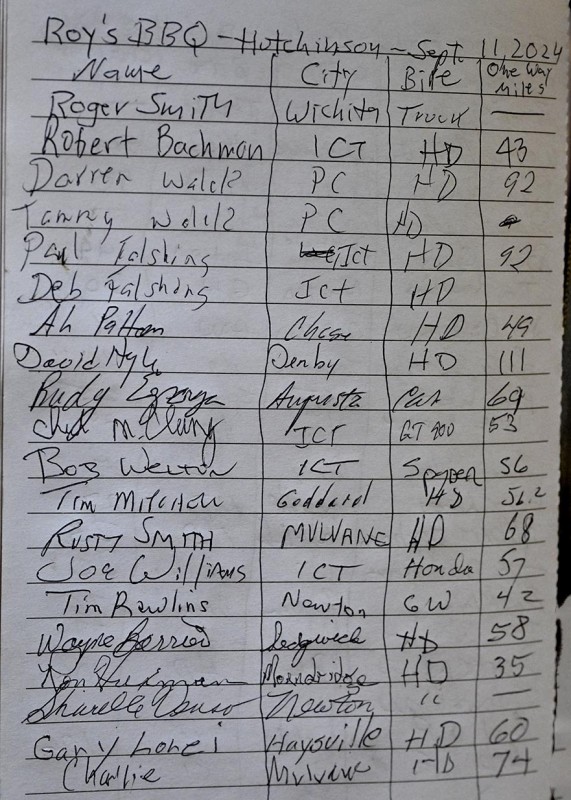 Roy's BBQ - Hutchinson - Sept. 11, 2024
Name City Bike One Way Miles
Roger Smith Wichita Truck —
Robert Bachman ICT HD 43
Darren PC HD 92
Tammy PC HD
Paul Falshing Ict HD 92
Deb Falshing Ict HD
Patton Chase HD 49
David Derby HD 111
Rudy Augusta Car 69
McClung ICT GT 900 53
Bob Welton ICT Spyder 56
Tim Mitchell Goddard HD 51.2
Rusty Smith MULVANE HD 68
Joe Williams ICT Honda 57
Tim Rawlins Newton GW 42
Wayne Sedgwick HD 58
Ron Moundridge HD 35
Newton " —
Gary Haysville HD 60
Charlie Mulvane HD 74